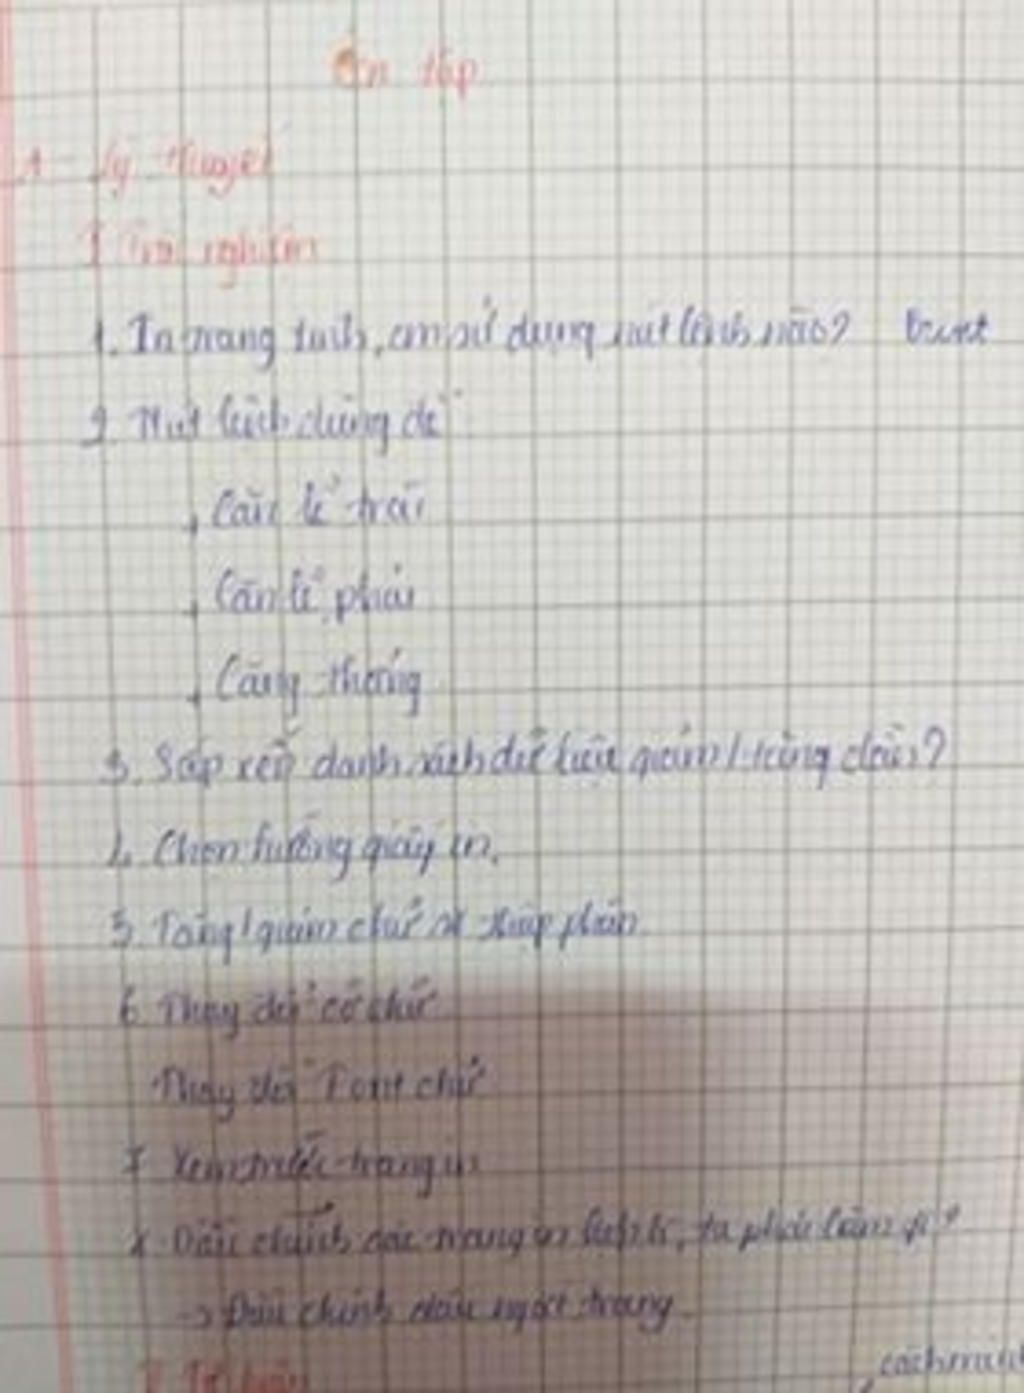 Ôn tập
A - Lý thuyết
I Trắc nghiệm
1. In trang tính, em sử dụng nút lệnh nào? Print
2. Nút lệnh dùng để
+ Căn lề trái
+ Căn lề phải
+ Căng thẳng
3. Sắp xếp danh sách dữ liệu giảm / tăng dần?
4. Chọn hướng giấy in.
5. Tăng / giảm chữ số thập phân
6. Thay đổi cỡ chữ
Thay đổi Font chữ
7. Xem trước trang in
8. Điều chỉnh các trang in hợp lí, ta phải làm gì?
-> Điều chỉnh dấu ngắt trang.